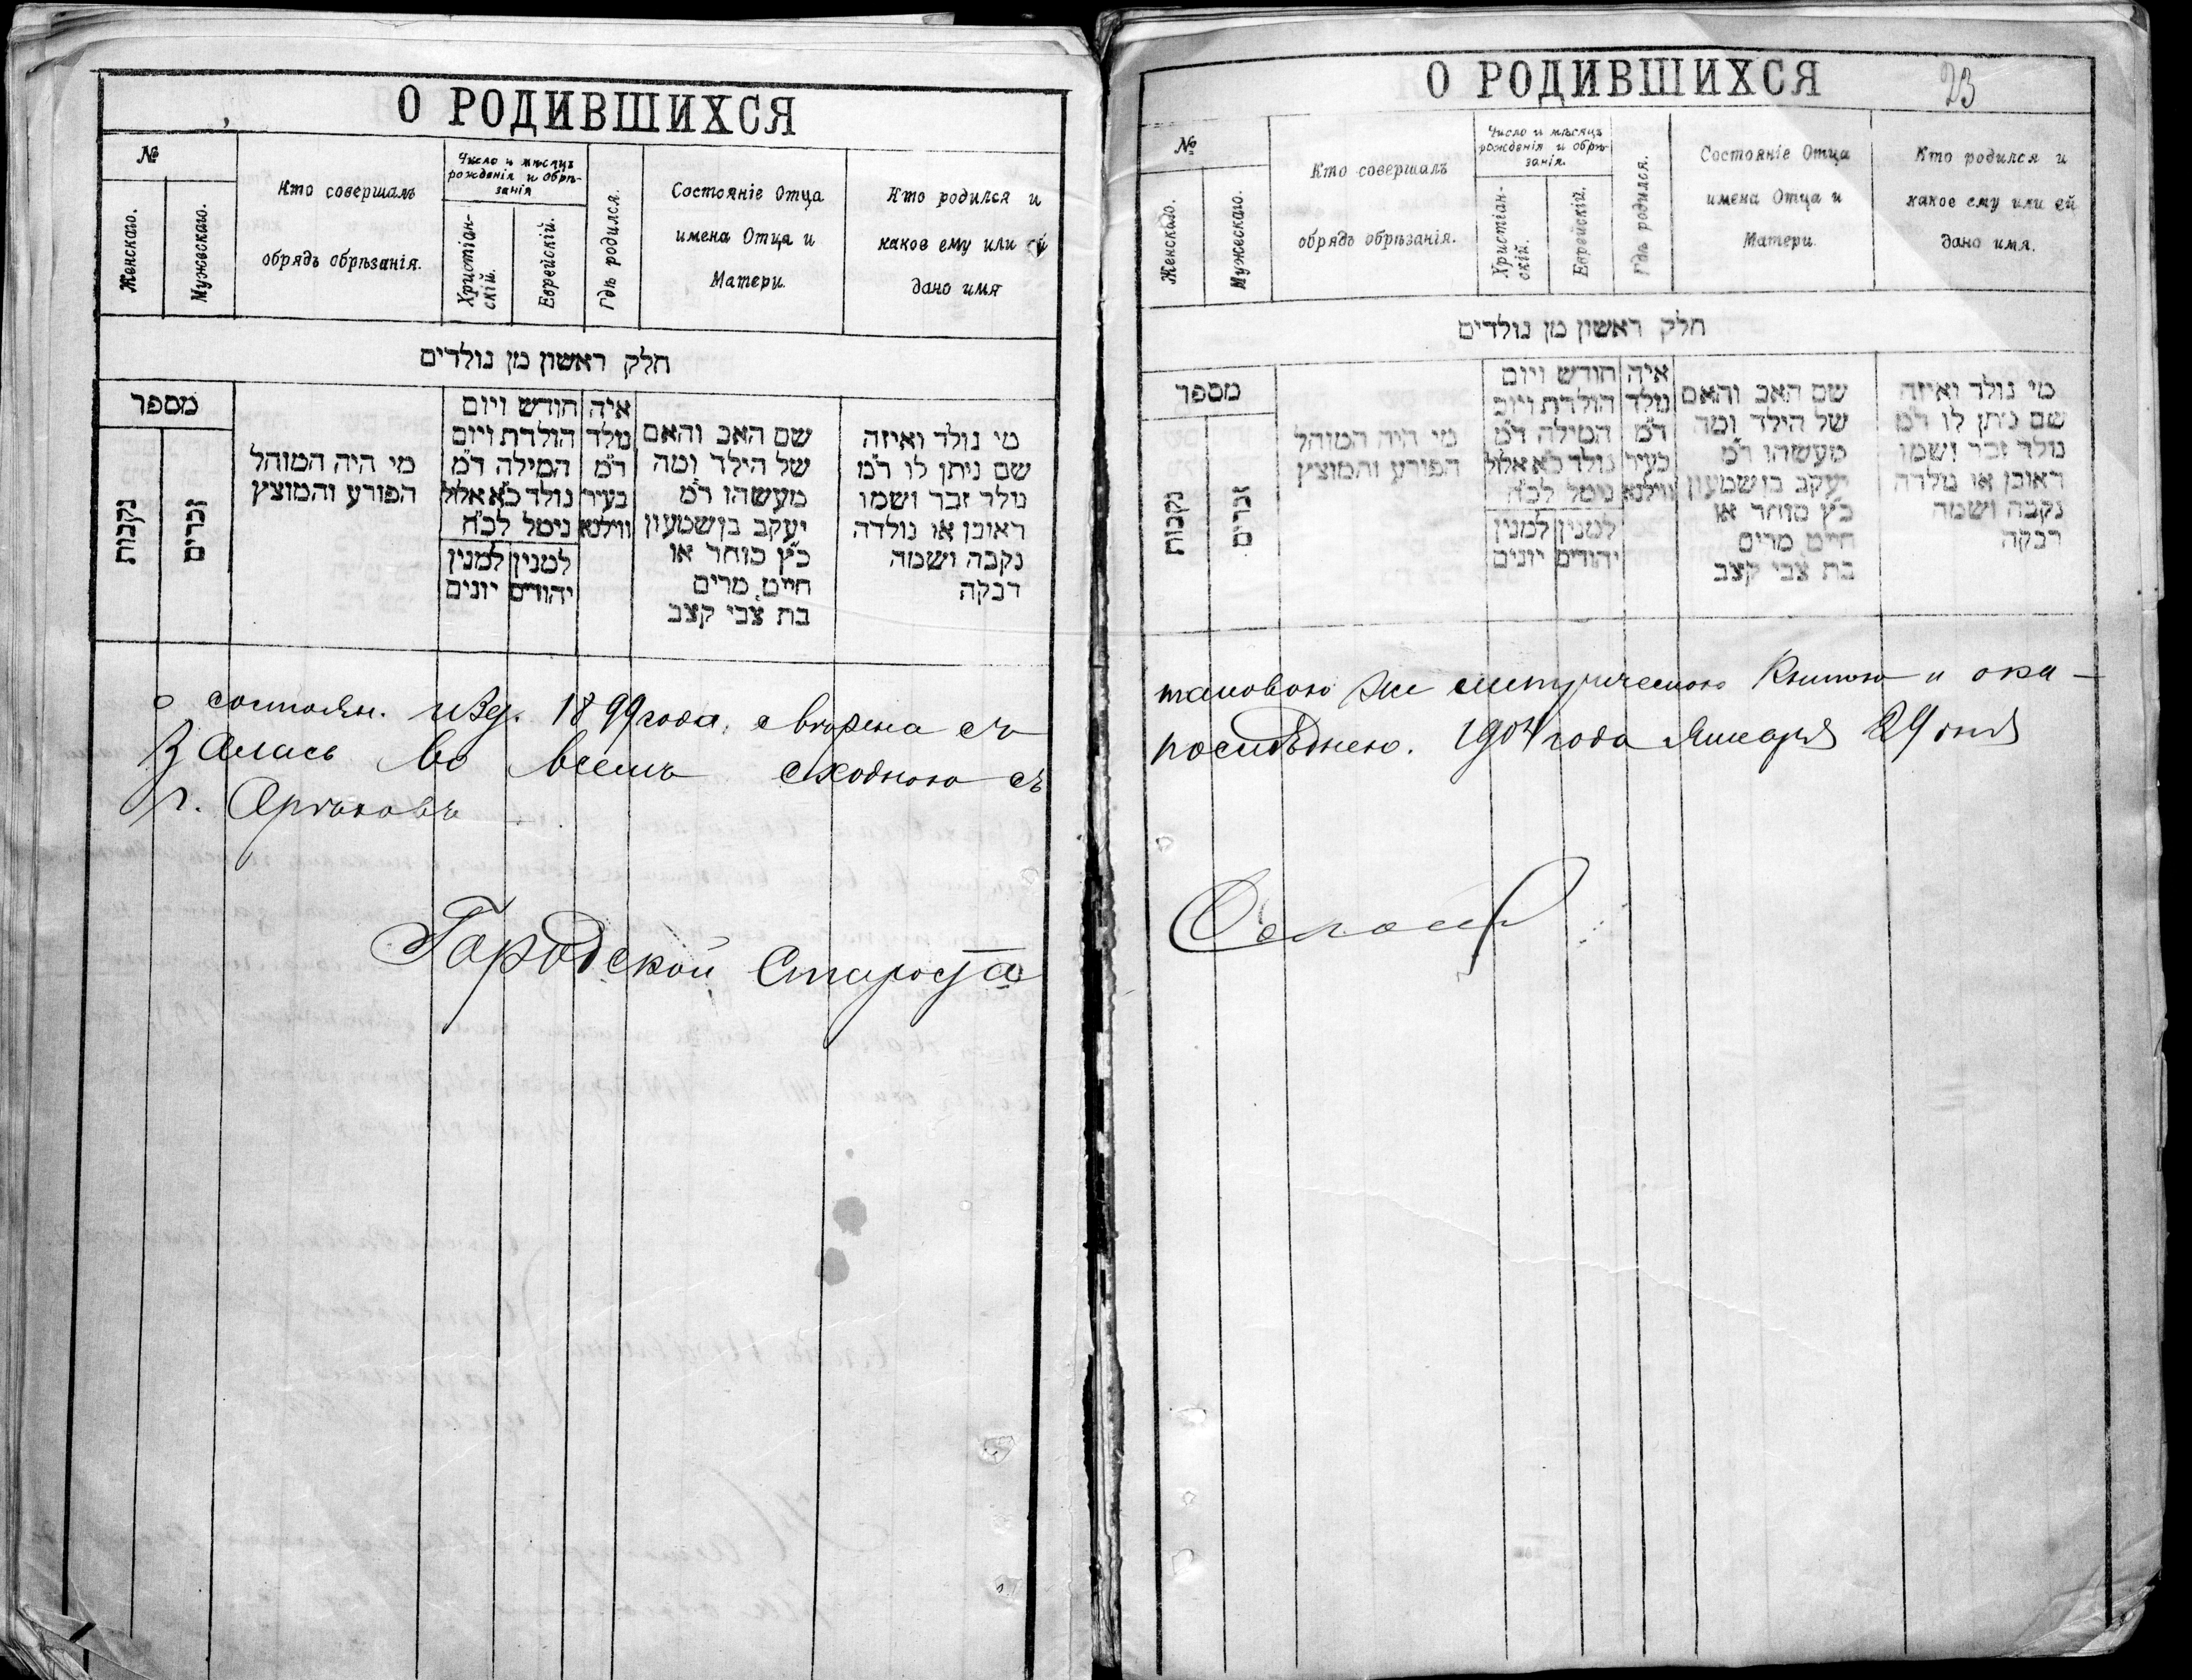 О РОДИВШИХСЯ
№
Женскаго.
Мужескаго.
Кто совершалъ
обрядъ обрѣзанія.
Число и мѣсяцъ
рожденія и обрѣ-
занія
Христіан-
скій.
Еврейскій.
Гдѣ родился.
Состояніе Отца
имена Отца и
Матери.
Кто родился и
какое ему или ей
дано имя
חלק ראשון מן נולדים
מספר
נקבות
זכרים
מי היה המוהל
הפורע והמוצץ
חודש ויום
הולדת ויום
המילה ד"מ
נולד כ"א אלול
נימל לכ"ח
למנין למנין
יהודים יונים
איה
נולד
ד"מ
בעיר
ווילנא
שם האב והאם
של הילד ומה
מעשהו ד"מ
יעקב בן שמעון
כ"ץ סוחר או
חייט, מרים
בת צבי קצב
מי נולד ואיזה
שם ניתן לו ד"מ
נולד זכר ושמו
ראובן או נולדה
נקבה ושמה
רבקה
о состоян. 1899 года, свѣрена съ
залась во всемъ сходною съ
г. Орѣховъ
Городской Староста
О РОДИВШИХСЯ
23
№
Женскаго.
Мужескаго.
Кто совершалъ
обрядъ обрѣзанія.
Число и мѣсяцъ
рожденія и обрѣ-
занія.
Христіан-
скій.
Еврейскій.
Гдѣ родился.
Состояніе Отца
имена Отца и
Матери.
Кто родился и
какое ему или ей
дано имя.
חלק ראשון מן נולדים
מספר
נקבות
זכרים
מי היה המוהל
הפורע והמוצץ
חודש ויום
הולדת ויום
המילה ד"מ
נולד כ"א אלול
נימל לכ"ח
למנין למנין
יהודים יונים
איה
נולד
ד"מ
בעיר
ווילנא
שם האב והאם
של הילד ומה
מעשהו ד"מ
יעקב בן שמעון
כ"ץ סוחר או
חייט, מרים
בת צבי קצב
מי נולד ואיזה
שם ניתן לו ד"מ
נולד זכר ושמו
ראובן או נולדה
נקבה ושמה
רבקה
таковою же метрическою книгою и ока-
послѣднею. 1904 года Января 29 дня